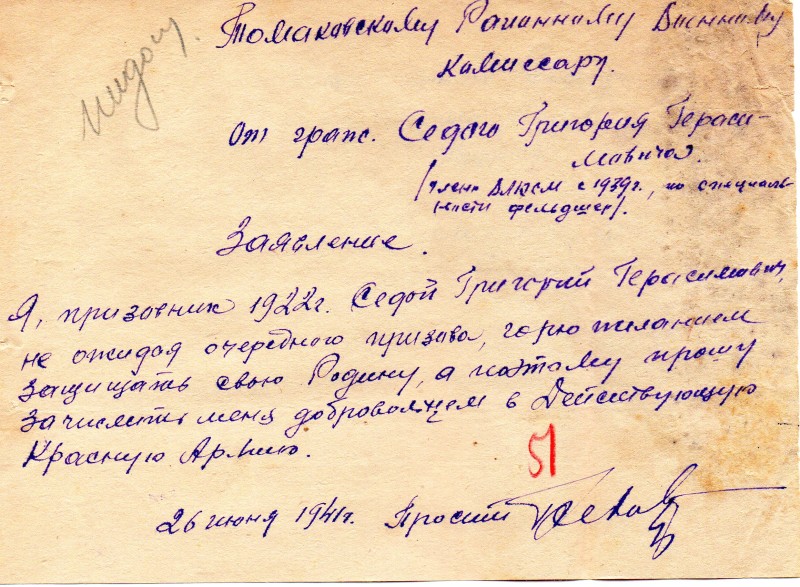 Томаковскому Районному Военному
комиссару.
От граж. Седого Григория Гераси-
мовича.
(член ВЛКСМ с 1939г., по специаль-
ности фельдшер).
Заявление.
Я, призовник 1922г. Седой Григорий Герасимович,
не ожидая очередного призова, горю желанием
защищать свою Родину, а поэтому прошу
зачислить меня добровольцем в Действующую
Красную Армию.
51
26 июня 1941г. Проситель